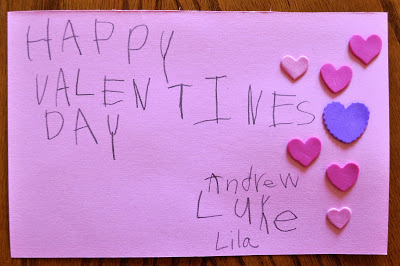 HAPPY
VALENTINES
DAY
Andrew
LUKe
Lila